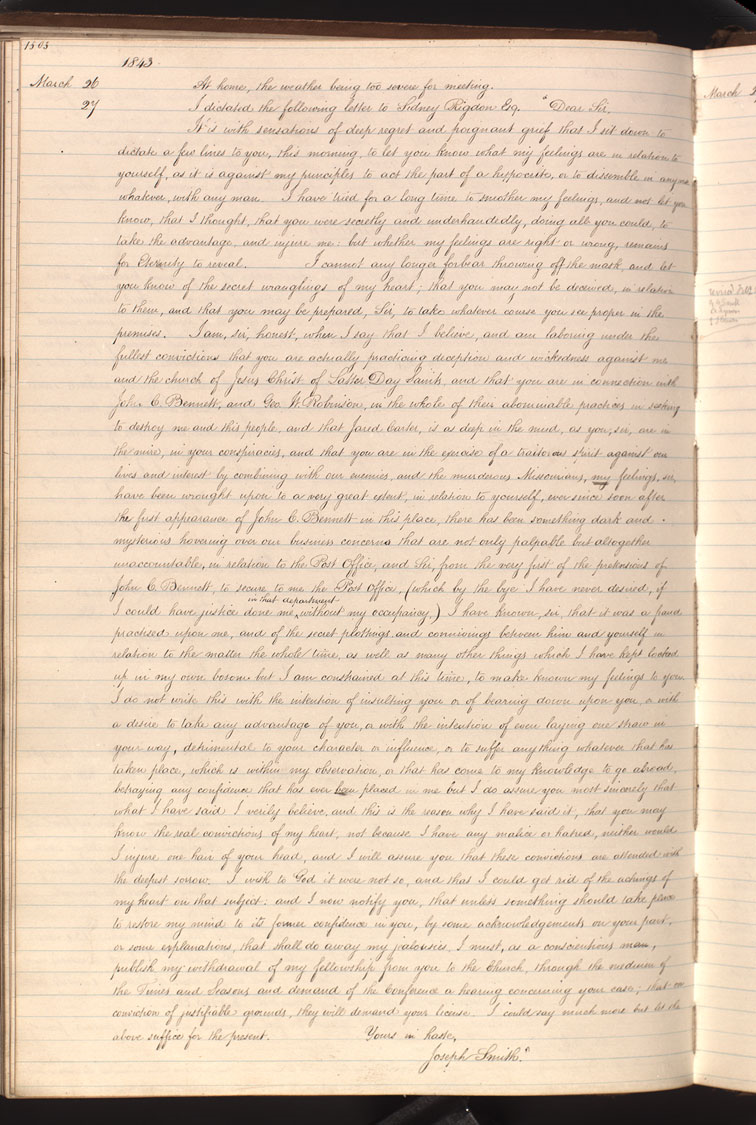 1503
1843.
March 26 At home, the weather being too severe for meeting.
27 I dictated the following letter to Sidney Rigdon Esq. "Dear Sir,
It is with sensations of deep regret and poignant grief that I sit down to
dictate a few lines to you, this morning, to let you know what my feelings are in relation to
yourself, as it is against my principles to act the part of a hypocrite, or to dissemble in any wise
whatever, with any man. I have tried for a long time to smother my feelings, and not let you
know, that I thought, that you were secretly and underhandedly, doing all you could, to
take the advantage, and injure me: but whether my feelings are right or wrong, remains
for Eternity to reveal. I cannot any longer forbear throwing off the mask, and let
you know of the secret wranglings of my heart; that you may not be deceived, in relation
to them, and that you may be prepared, Sir, to take whatever course you see proper in the
premises. I am, sir, honest, when I say that I believe, and am laboring under the
fullest convictions that you are actually practicing deception and wickedness against me
and the church of Jesus Christ of Latter Day Saints, and that you are in connection with
John C. Bennett, and Geo. W. Robinson, in the whole of their abominable practices in seeking
to destroy me and this people, and that Jared Carter, is as deep in the mud, as you, sir, are in
the mire, in your conspiracies, and that you are in the exercise of a traitorous spirit against our
lives and interest by combining with our enemies, and the murderous Missourians, my feelings, sir,
have been wrought upon to a very great extent, in relation to yourself, ever since soon after
the first appearance of John C. Bennett in this place, there has been something dark and
mysterious hovering over our business concerns that are not only palpable but altogether
unaccountable, in relation to the Post Office, and Sir, from the very first of the pretensions of
John C. Bennett, to secure to me the Post Office, (which by the bye I have never desired, if
in that department
I could have justice done me, without my occupancy,) I have known, sir, that it was a fraud
practised upon me, and of the secret plottings and connivings between him and yourself in
relation to the matter the whole time, as well as many other things which I have kept locked
up in my own bosom but I am constrained at this time, to make known my feelings to you
I do not write this with the intention of insulting you or of bearing down upon you, or with
a desire to take any advantage of you, or with the intention of even laying one straw in
your way, detrimental to your character or influence, or to suffer anything whatever that has
taken place, which is within my observation, or that has come to my knowledge to go abroad,
betraying any confidence that has ever been placed in me but I do assure you most sincerely that
what I have said I verily believe, and this is the reason why I have said it, that you may
know the real convictions of my heart, not because I have any malice or hatred, neither would
I injure one hair of your head, and I will assure you that these convictions are attended with
the deepest sorrow. I wish to God it were not so, and that I could get rid of the achings of
my heart on that subject: and I now notify you, that unless something should take place
to restore my mind to its former confidence in you, by some acknowledgements on your part,
or some explanations, that shall do away my jealousies, I must, as a conscientious man,
publish my withdrawal of my fellowship from you to the Church, through the medium of
the Times and Seasons and demand of the Conference a hearing concerning your case; that on
conviction of justifiable grounds, they will demand your license. I could say much more but let the
above suffice for the present. Yours in haste,
Joseph Smith."
March